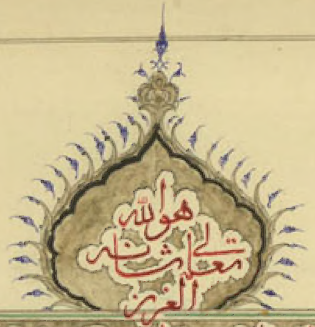 هو الله
تعالی شانه
العزیز